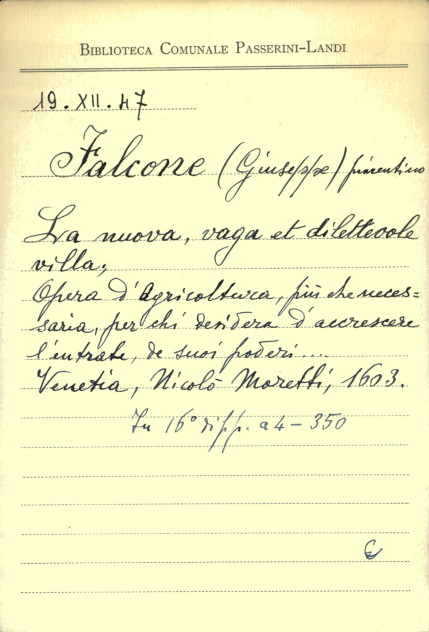 BIBLIOTECA COMUNALE PASSERINI-LANDI
19. XII. 47
Falcone (Giuseppe) piacentino
La nuova, vaga et dilettevole
villa;
Opera d'Agricoltura, più che neces=
saria, per chi desidera d'accrescere
l'entrate, de suoi poderi....
Venetia, Nicolò Moretti, 1603.
In 16° di pp. a4 - 350